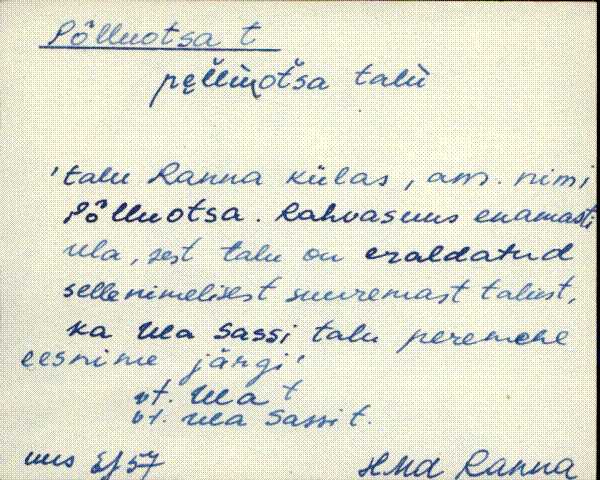 Põlluotsa t
talu
'talu Ranna külas, am. nimi
Põlluotsa. Rahvasuus enamasti
Ula, sest talu on eraldatud
sellenimelisest suuremast talust,
ka Ula Sassi talu peremehe
eesnime järgi'
vt. Ula t
vt. Ula Sassi t.
EJ 57
Ranna